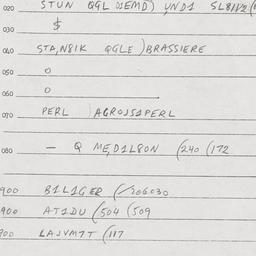 020 STUN QGL
$
030
040 STA,N8IK QGLE )BRASSIERE
050 0
060 0
070 PERL )AGROJS1PERL
080 — Q MED1L8ON (240 (172
900 B1L1GER (/206030
900 AT1DU (504 (509
900 LAJVM7T (117